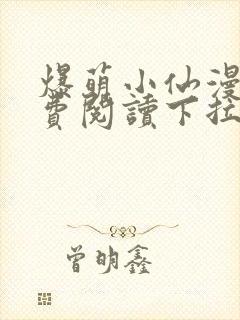 爆萌小仙漫
费閱讀下拉
曾明鑫